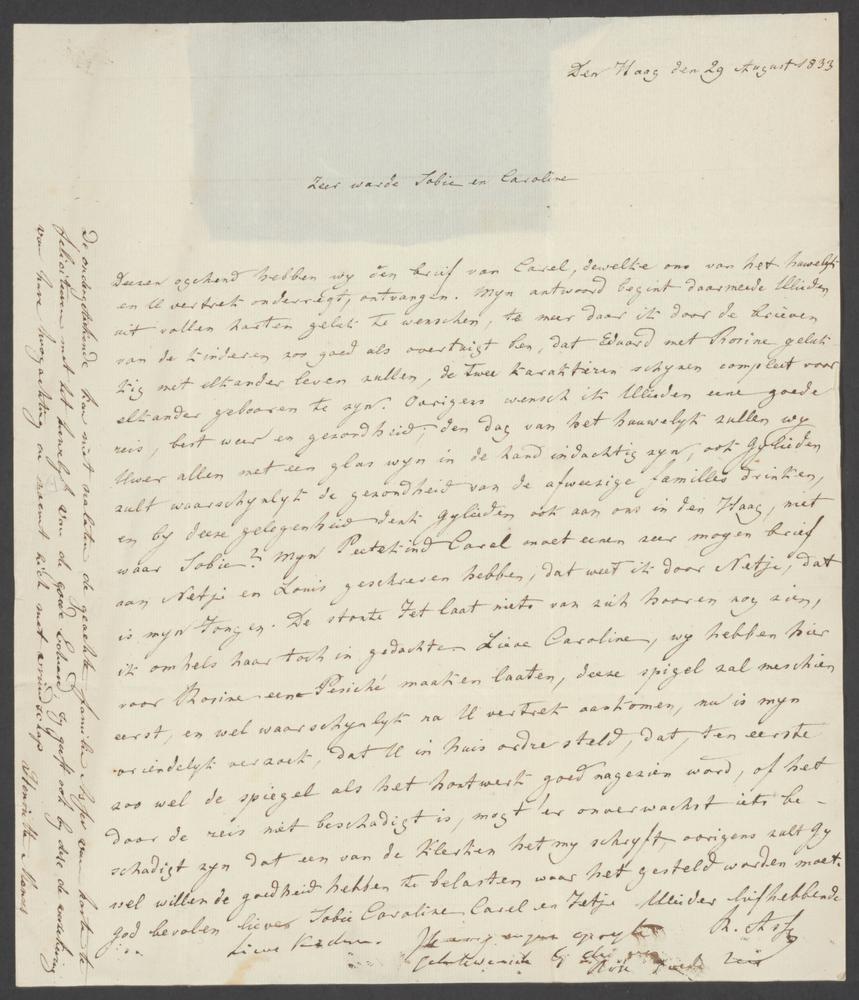 Den Haag den 29 August 1833
Zeer warde Tobie en Caroline
Deezen ogthend hebben wy den brief van Carel, dewelke ons van het huwelyk
en U vertrek onderregt, ontvangen. Myn antwoord begint daarmeede Ulieden
uit vollen harten geluk te wenschen, te meer daar ik door de brieven
van de kinderen zoo goed als overtuigt ben, dat Eduard met Rosine geluk
kig met elkander leven zullen, de twee karakteren schynen compleet voor
elkander gebooren te zyn. Ovrigens wensch ik Ulieden eene goede
reis, best weer en gezondheid, den dag van het huuwelyk zullen wy
Uwer allen met een glas wyn in de hand indachtig zyn, ook Gylieden
zult waarschynlyk de gezondheid van de afweezige families drinken,
en by deeze gelegenheid denk Gylieden ook aan ons in den Haag, niet
waar Tobie? Myn Peetekind Carel moet eenen zeer mogen brief
aan Netje en Louis geschreven hebben, dat weet ik door Netje, dat
is myn Jongen. De stoute Jet laat niets van zich hooren nog zien,
ik omhels haar toch in gedachte Lieve Caroline, wy hebben hier
voor Rosine eene Pesiché maaken laaten, deeze spigel zal meschien
eerst, en wel waarschynlyk na U vertrek aankomen, nu is myn
vriendelyk verzoek, dat U in huis ordre steld, dat, ten eerste
zoo wel de spiegel als het houtwerk goed nagezien word, of het
door de reis niet beschadigt is, mogt er onverwachst iets be-
schadigt zyn dat een van de klerken het my schryft, ovrigens zult Gy
wel willen de goedheid hebben te belasten waar het gesteld worden moet.
God bevolen lieve Tobie Caroline Carel en Jetje Ulieder liefhebbende
Lieve
R.
De ondergeteekende kan niet nalaten de geachte familie van harte te
feliciteeren met het huwelyk van de goede Eduard, zy geeft ook by deze de verzekering
van hare hoogachting en noemt zich met vriendschap
Henriette